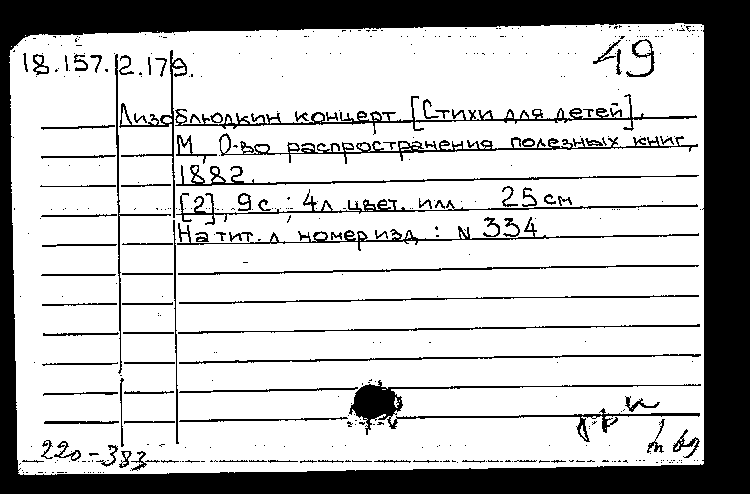 18.157.2.179.
49
Лизоблюдкин концерт. [Стихи для детей].
М., О-во распространения полезных книг,
1882.
[2], 9 с.; 4 л. цвет. илл. 25 см
На тит. л. номер изд.: N 334.
220-383